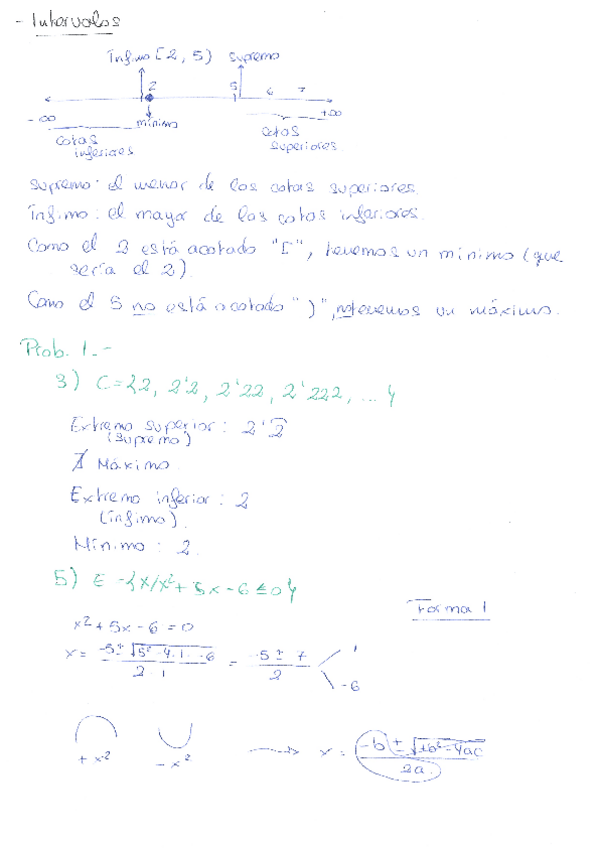 - Intervalos
Ínfimo [2, 5) supremo
2 5 6 7
-∞ mínimo +∞
cotas inferiores cotas superiores
supremo: el menor de las cotas superiores.
Ínfimo: el mayor de las cotas inferiores.
Como el 2 está acotado "[", tenemos un mínimo (que
sería el 2)
Como el 5 no está acotado ")", no tenemos un máximo.
Prob. 1.-
3) C={2, 2'2, 2'22, 2'222, ...}
Extremo superior: 2'2̅
(supremo)
∄ Máximo
Extremo inferior: 2
(ínfimo).
Mínimo: 2.
5) E={x/x²+5x-6≤0}
Forma 1
x²+5x-6=0
x = (-5±√(5²-4·1·-6))/(2·1) = (-5±7)/2 1
-6
+x² -x² → x = (-b±√(+b²-4ac))/(2a)